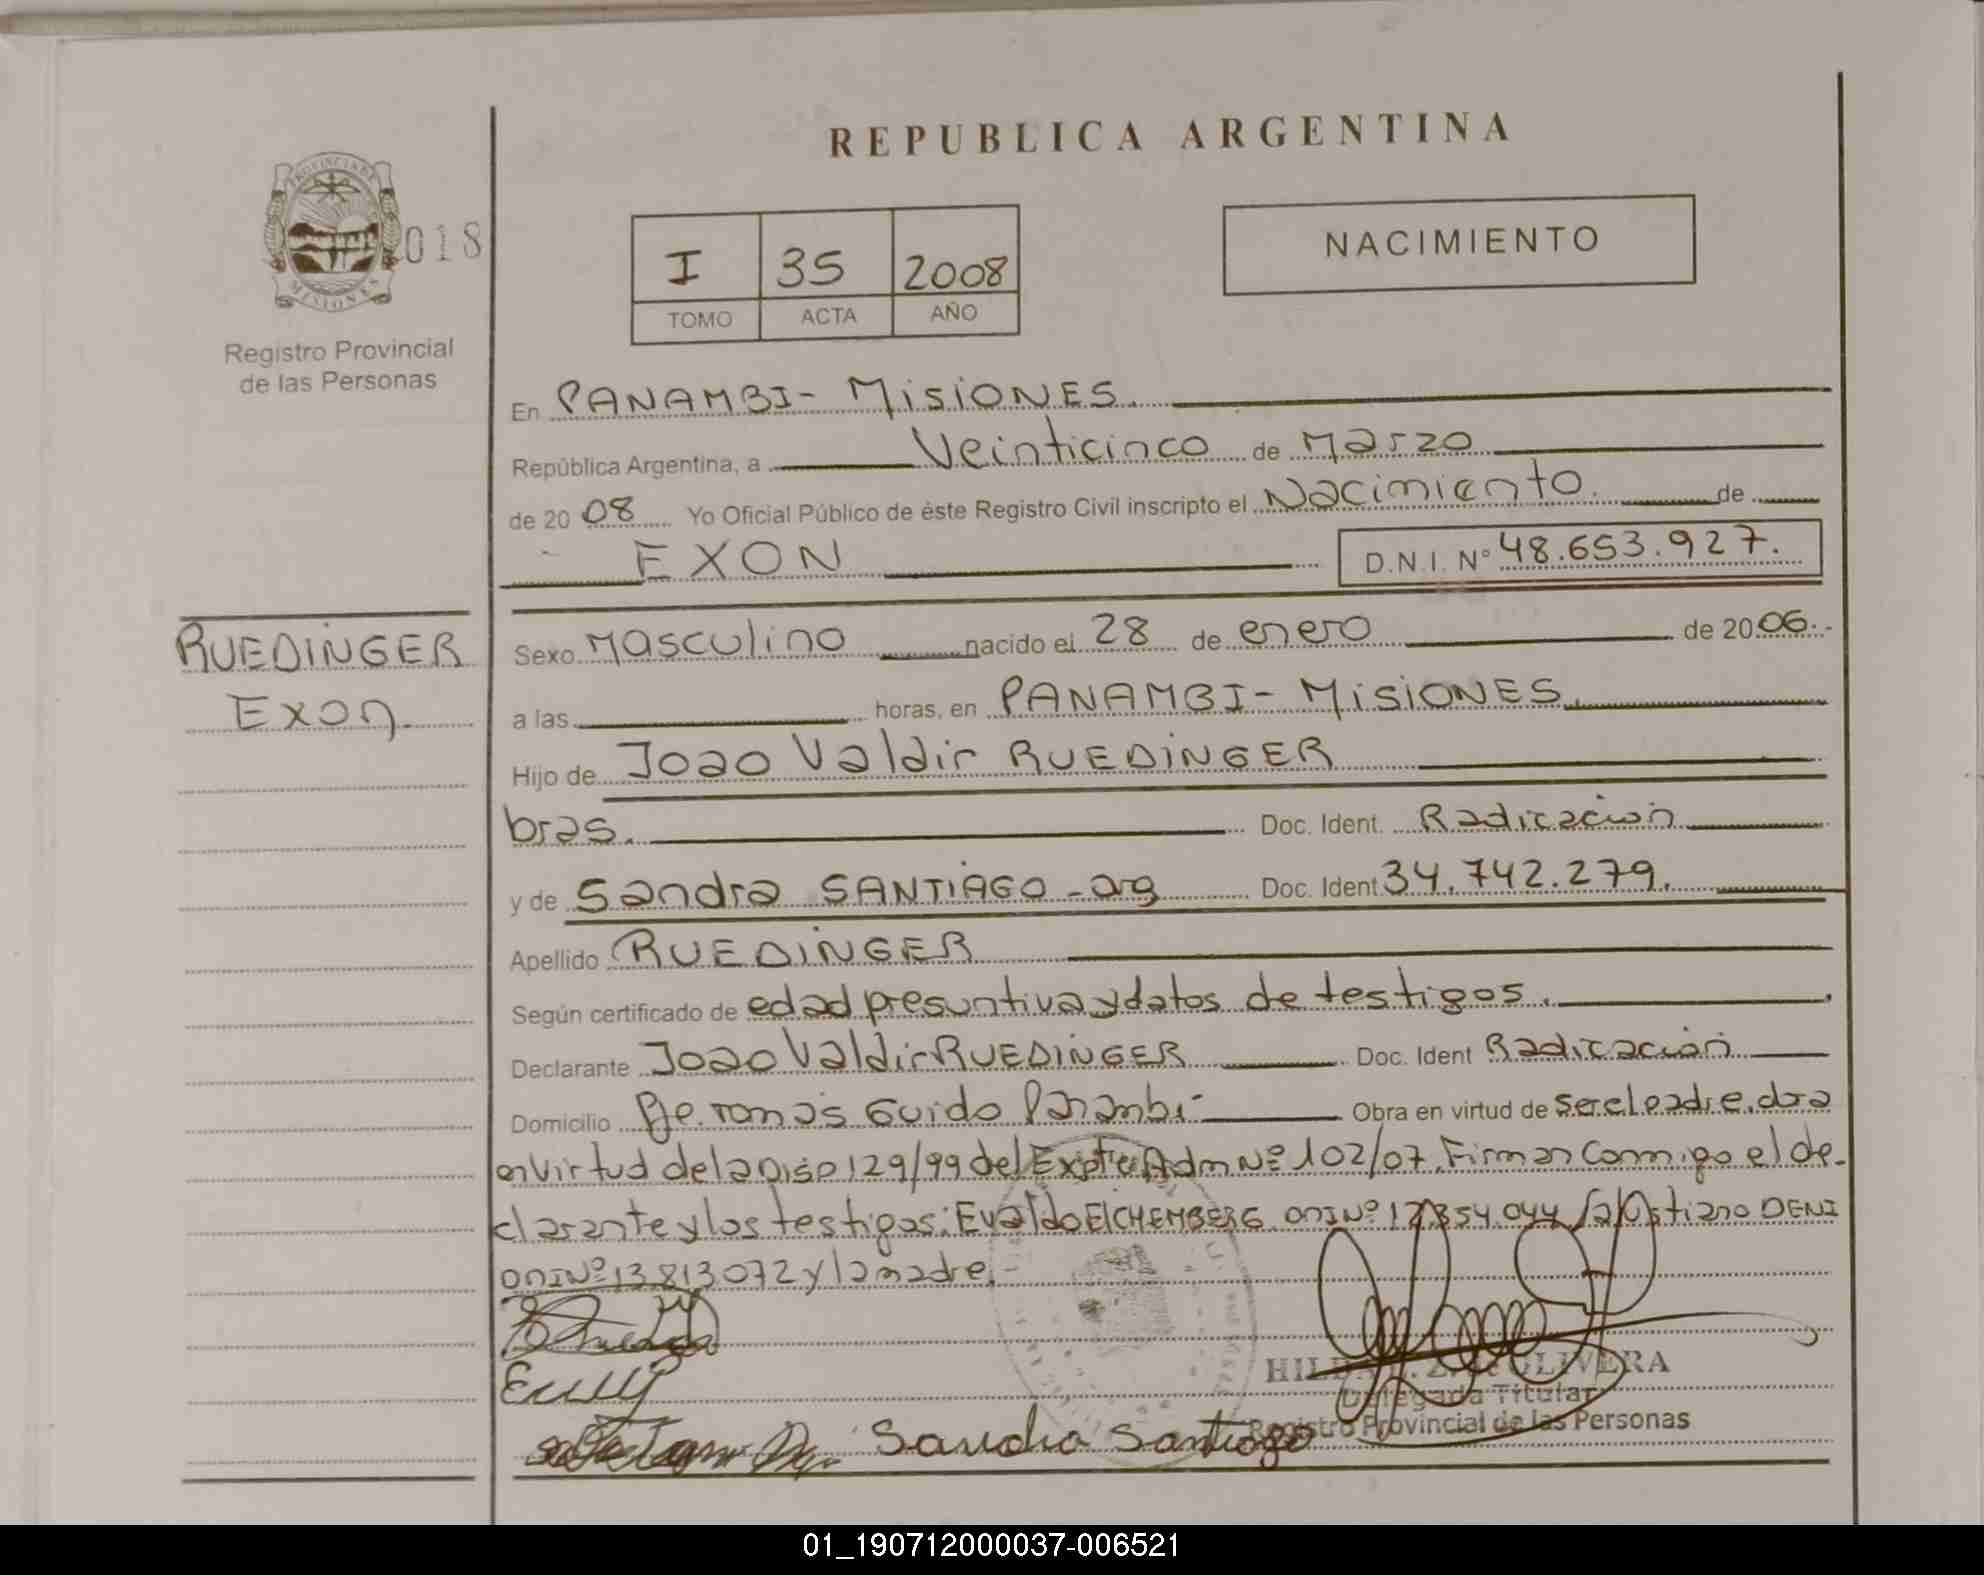 REPUBLICA ARGENTINA
PROVINCIA DE
MISIONES
018
Registro Provincial
de las Personas
I 35 2008
TOMO ACTA AÑO
NACIMIENTO
En PANAMBI - MisiONES.
República Argentina, a Veinticinco de Marzo
de 2008 Yo Oficial Público de éste Registro Civil inscripto el Nacimiento. de
EXON D.N.I. Nº 48.653.927.
RUEDINGER
Exon.
Sexo Masculino nacido el 28 de enero de 2006.-
a las horas, en PANAMBI - MisiONES.
Hijo de Joao Valdir RUEDINGER
bras. Doc. Ident. Radicación
y de Sandra SANTIAGO - arg Doc. Ident 34.742.279.
Apellido RUEDINGER
Según certificado de edad presuntiva y datos de testigos.
Declarante Joao Valdir RUEDINGER Doc. Ident Radicación
Domicilio Pje. Tomas Guido Panambi Obra en virtud de ser el padre,
en virtud de la Disp 129/99 del Expte Adm Nº 102/07. Firman Conmigo el de-
clarante y los testigos: Evaldo EICHEMBERG DNI Nº 17.854.044 DENI
DNI Nº 13813072 y la madre.-
Sandra Santiago
HILDA OLIVERA
Delegada Titular
Registro Provincial de las Personas
01_190712000037-006521